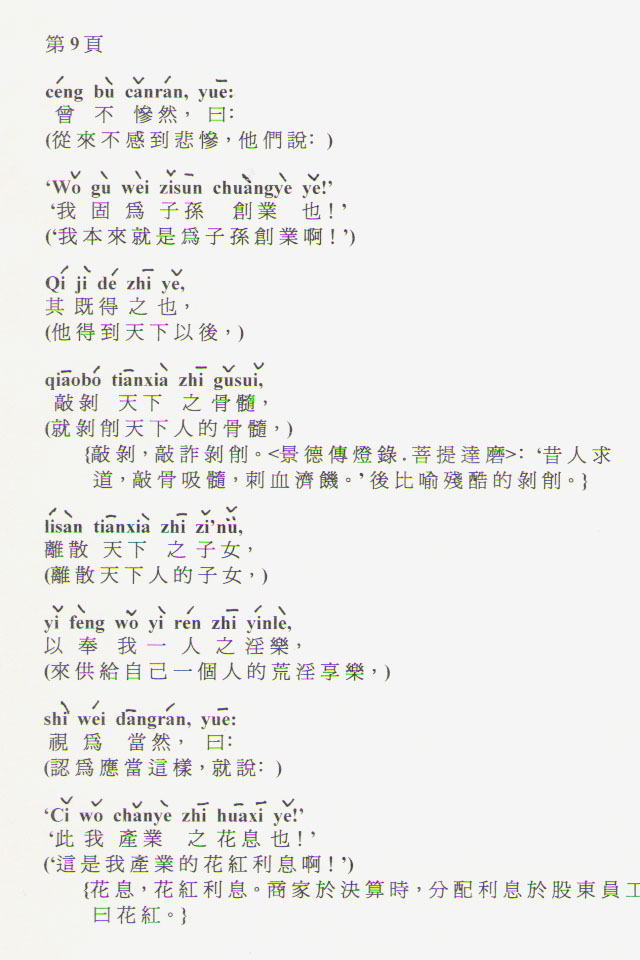 第9頁
céng bù cǎnrán, yuē:
曾 不 慘然， 曰：
(從來不感到悲慘，他們說： )
‘Wǒ gù wèi zǐsūn chuàngyè yě!’
‘我 固 爲 子孫 創業 也！’
(‘我本來就是爲子孫創業啊！’)
Qí jì dé zhī yě,
其 既得 之 也，
(他得到天下以後，)
qiāobō tiānxià zhī gǔsuǐ,
敲剝 天下 之 骨髓，
(就剝削天下人的骨髓，)
{敲剝，敲詐剝削。<景德傳燈錄.菩提達磨>：‘昔人求
道，敲骨吸髓，刺血濟饑。’後比喻殘酷的剝削。}
lísàn tiānxià zhī zǐ’nǚ,
離散 天下 之 子女，
(離散天下人的子女，)
yǐ fèng wǒ yì rén zhī yínlè,
以 奉 我 一 人 之 淫樂，
(來供給自己一個人的荒淫享樂，)
shì wéi dāngrán, yuē:
視 爲 當然， 曰：
(認爲應當這樣，就說： )
‘Cǐ wǒ chǎnyè zhī huāxī yě!’
‘此 我 產業 之 花息 也！’
(‘這是我產業的花紅利息啊！’)
{花息，花紅利息。商家於決算時，分配利息於股東員工
曰花紅。}